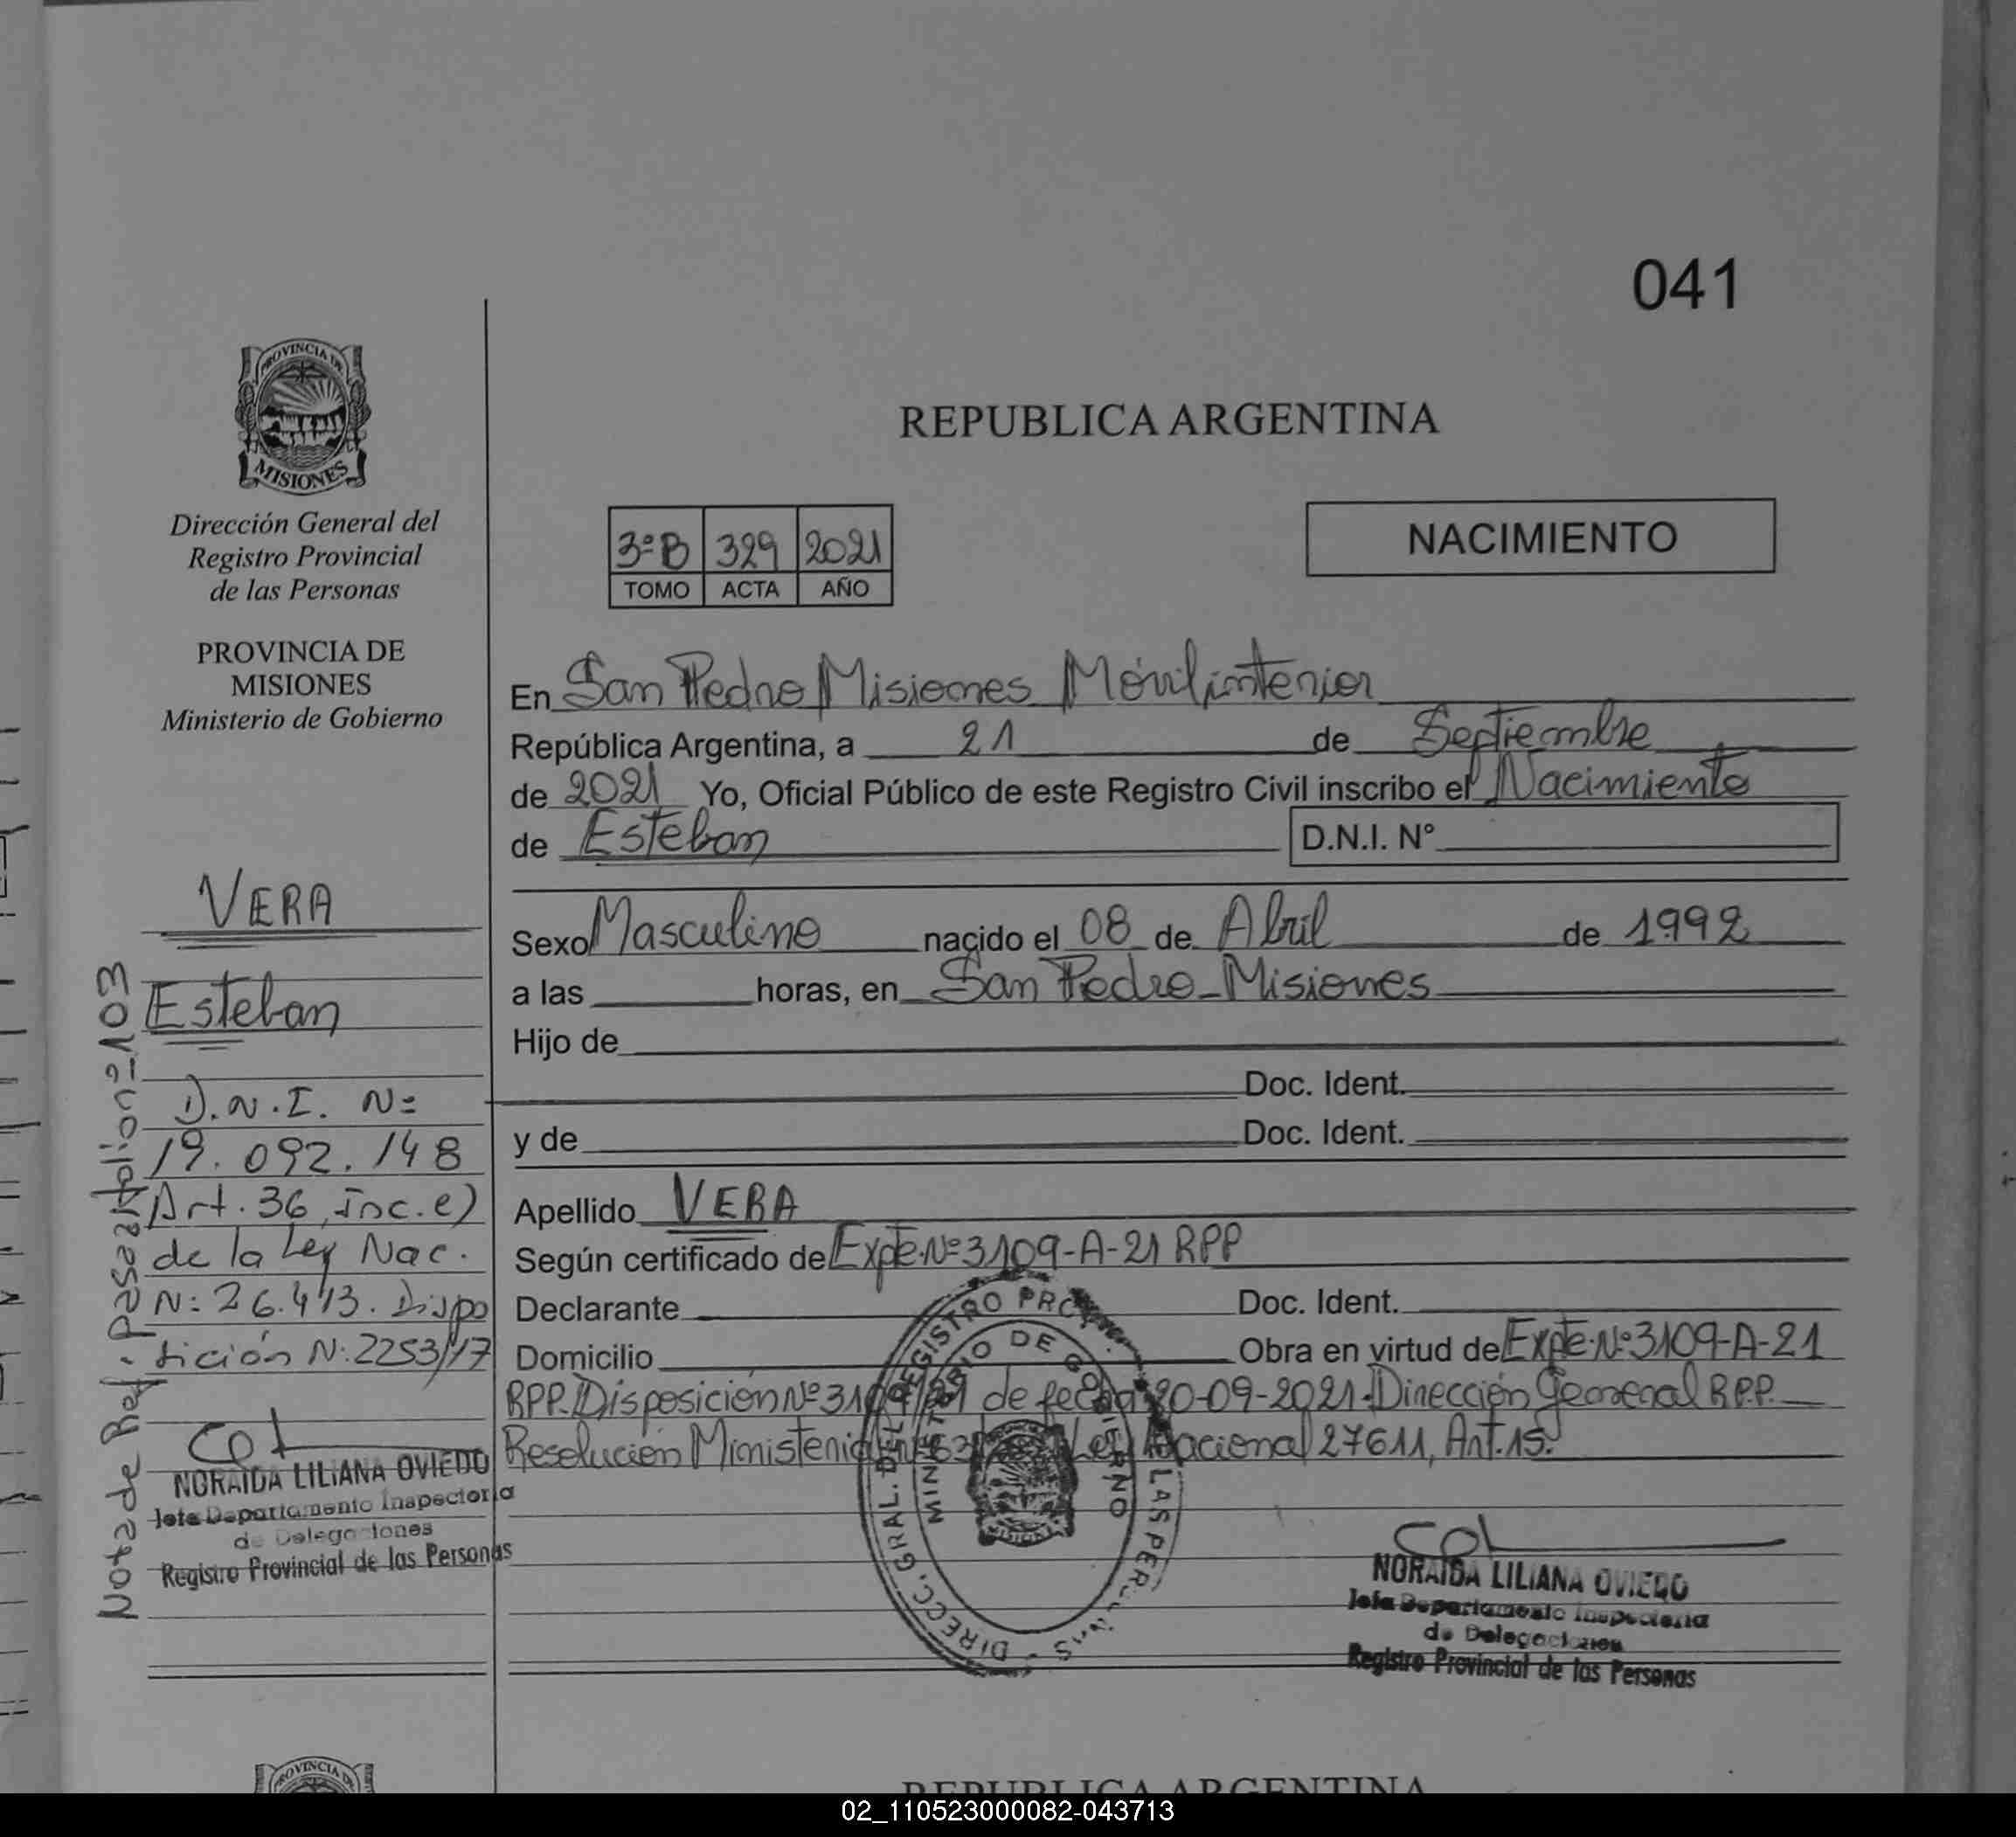 041
PROVINCIA DE
MISIONES
Dirección General del
Registro Provincial
de las Personas
PROVINCIA DE
MISIONES
Ministerio de Gobierno
VERA
Esteban
D.N.I. Nº
19.092.148
Art. 36, inc. e)
de la Ley Nac.
Nº 26.413. Dispo
sición Nº 2253/17
NORAIDA LILIANA OVIEDO
Jefa Departamento Inspectoria
de Delegaciones
Registro Provincial de las Personas
Nota de Ref. Pasa al folio nº 103
REPUBLICA ARGENTINA
3ºB 329 2021
TOMO ACTA AÑO
NACIMIENTO
En San Pedro Misiones Móvil interior
República Argentina, a 21 de Septiembre
de 2021 Yo, Oficial Público de este Registro Civil inscribo el Nacimiento
de Esteban D.N.I. N°
Sexo Masculino nacido el 08 de Abril de 1992
a las horas, en San Pedro - Misiones
Hijo de
Doc. Ident.
y de Doc. Ident.
Apellido VERA
Según certificado de Expte. Nº 3109-A-21 RPP
Declarante Doc. Ident.
Domicilio Obra en virtud de Expte. Nº 3109-A-21
RPP. Disposición Nº /21 de fecha 20-09-2021. Dirección General R.P.P.
Resolución Ministerial Ley Nacional 27611, Art. 15.
DIRECC. GRAL. DEL REGISTRO PROV. LAS PERSONAS
MINISTERIO DE GOBIERNO
MISIONES
NORAIDA LILIANA OVIEDO
Jefa Departamento Inspectoria
de Delegaciones
Registro Provincial de las Personas
PROVINCIA DE
REPUBLICA ARGENTINA
02_110523000082-043713